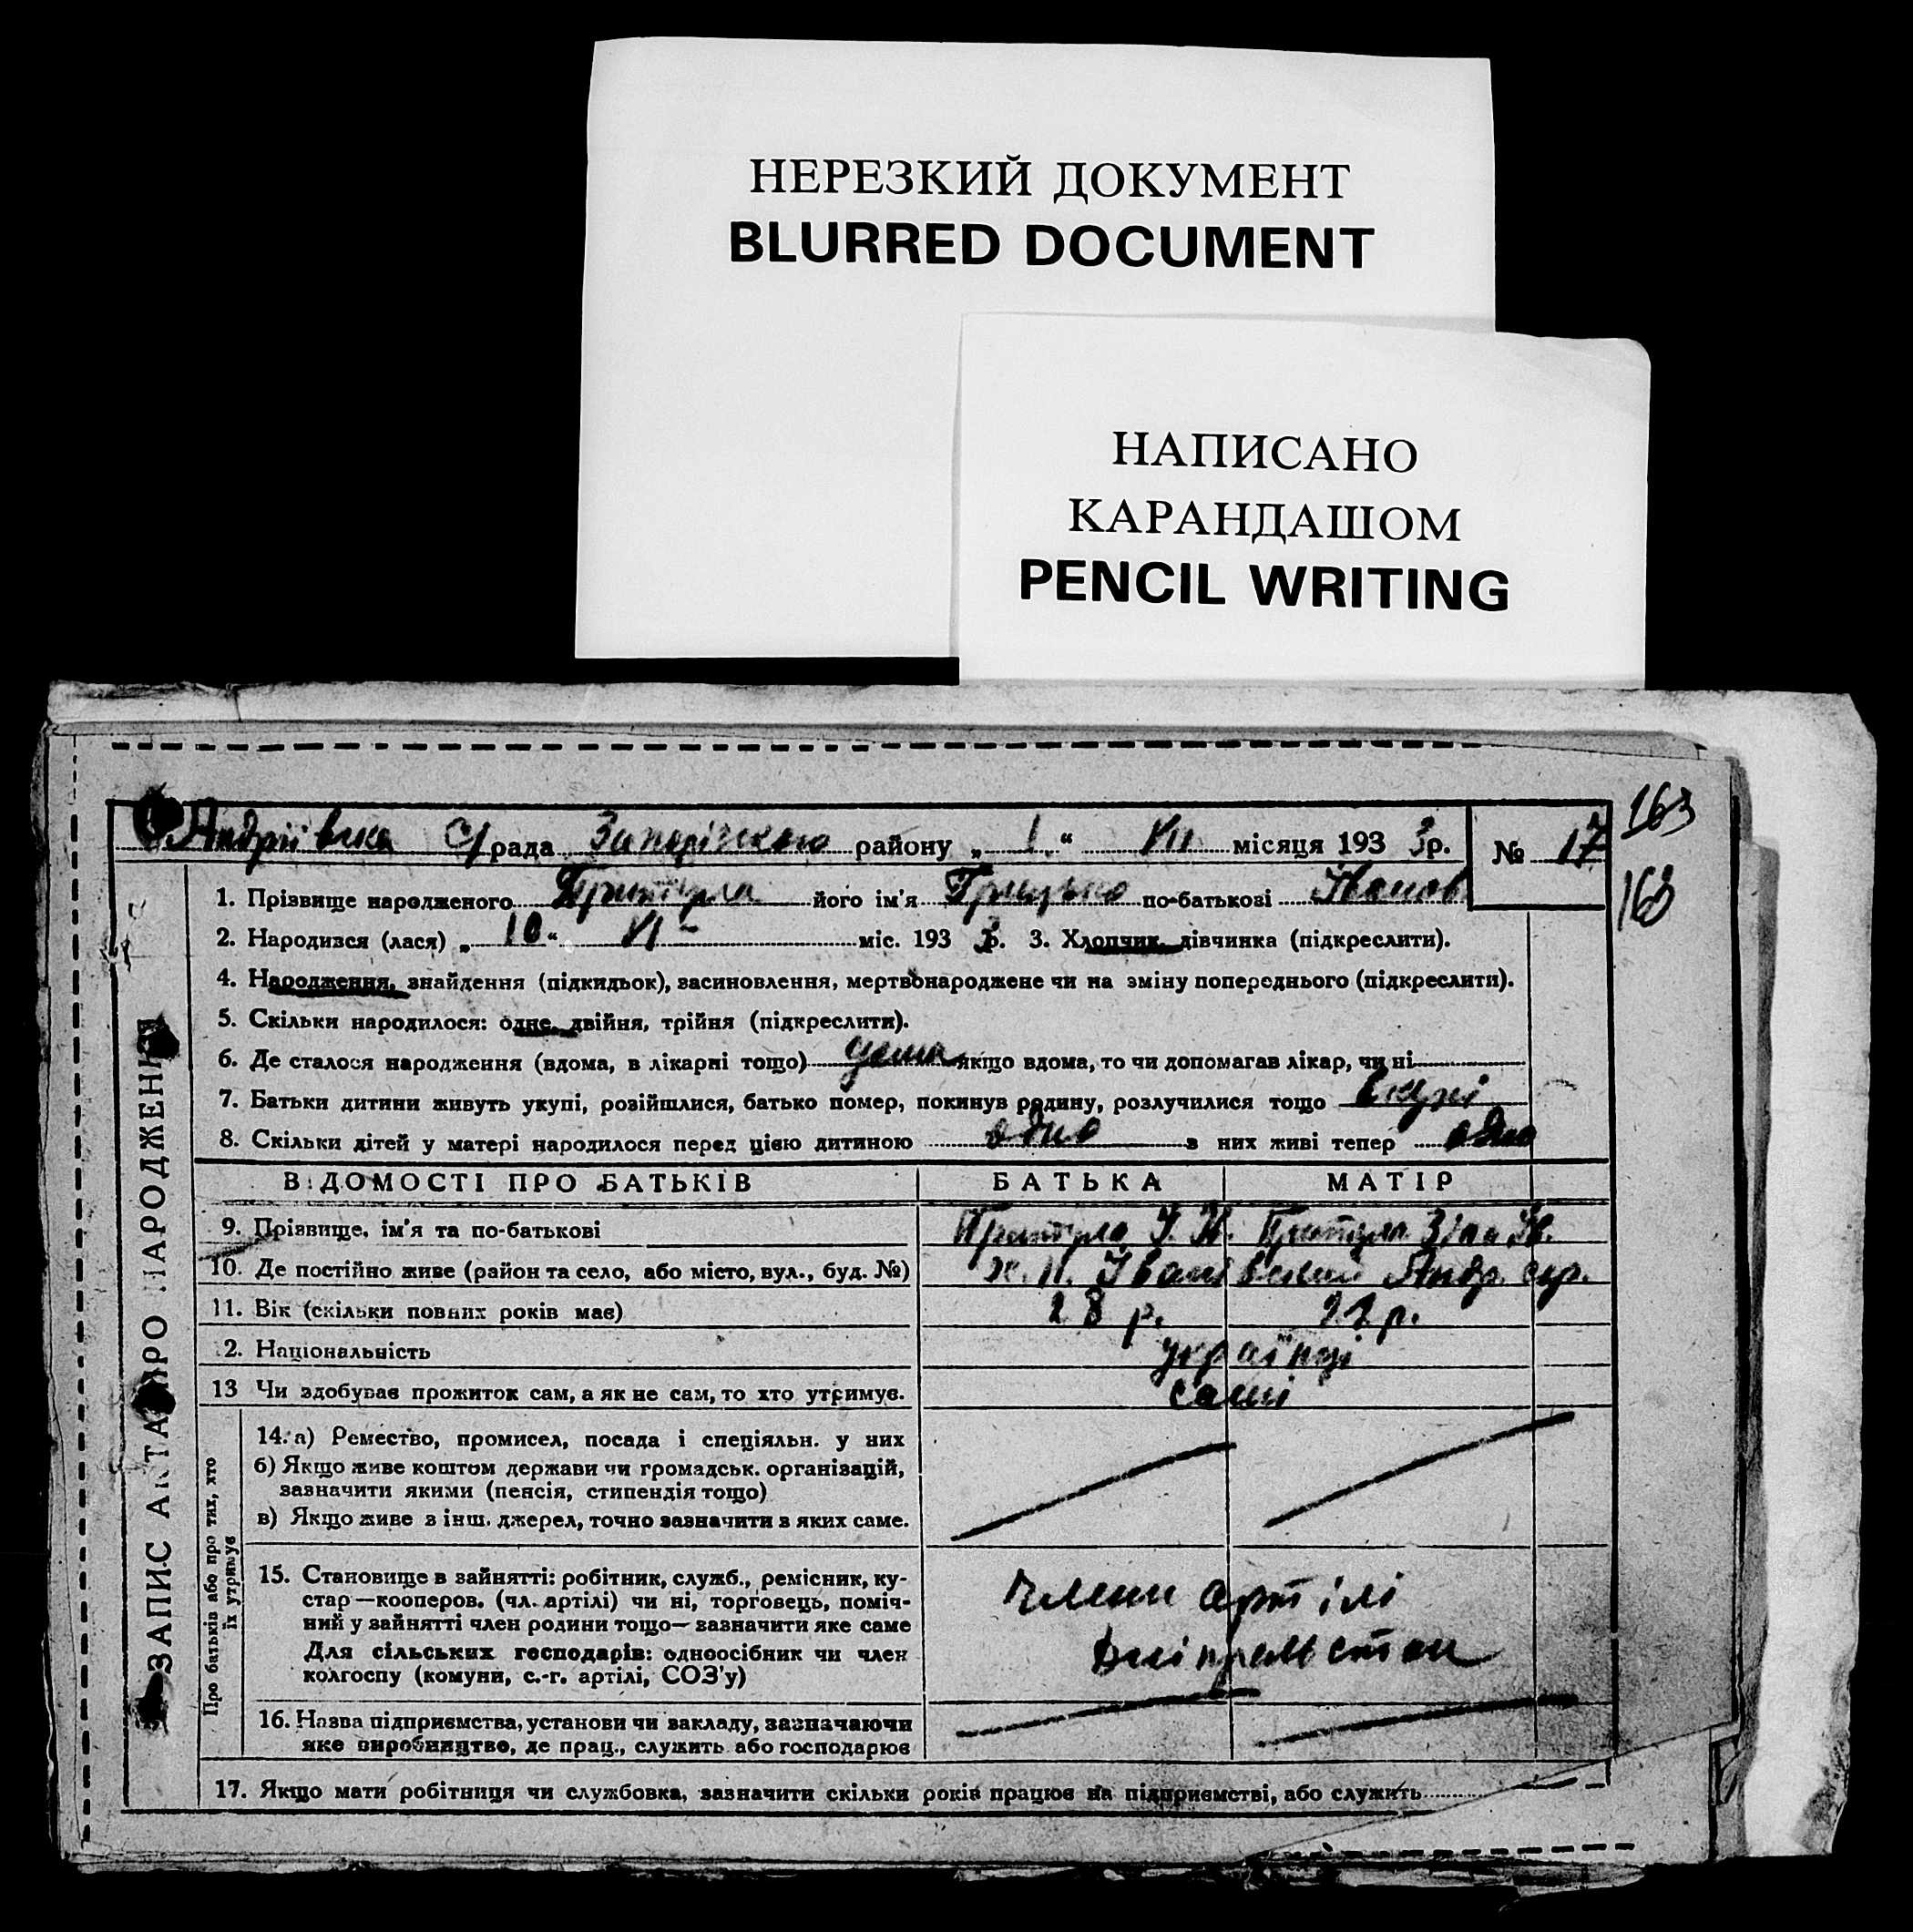 НЕРЕЗКИЙ ДОКУМЕНТ
BLURRED DOCUMENT
НАПИСАНО
КАРАНДАШОМ
PENCIL WRITING
163
Андріївська с/рада Запорізького району „ 1 “ VII місяця 1933р. № 17
163
1. Прізвище народженого Притула його ім'я Грицько по-батькові Іванов
2. Народився (лася) „ 10 “ VI - міс. 193 3р. 3. Хлопчик, дівчинка (підкреслити).
4. Народження, знайдення (підкидьок), засиновлення, мертвонароджене чи на зміну попереднього (підкреслити).
5. Скільки народилося: одне, двійня, трійня (підкреслити).
6. Де сталося народження (вдома, в лікарні тощо) дома якщо вдома, то чи допомагав лікар, чи ні
7. Батьки дитини живуть укупі, розійшлися, батько помер, покинув родину, розлучилися тощо вкупі
8. Скільки дітей у матері народилося перед цією дитиною одно з них живі тепер одно
ЗАПИС АКТА ПРО НАРОДЖЕННЯ
ВІДОМОСТІ ПРО БАТЬКІВ БАТЬКА МАТІР
9. Прізвище, ім'я та по-батькові Притула І. Притула
10. Де постійно живе (район та село, або місто, вул., буд. №) х. Іванівський Андр. с/р.
11. Вік (скільки повних років має) 28 р. р.
12. Національність українці
13 Чи здобуває прожиток сам, а як не сам, то хто утримує. самі
Про батьків або про тих, хто
їх утримує
14. а) Ремество, промисел, посада і спеціяльн. у них
б) Якщо живе коштом держави чи громадськ. організацій,
зазначити якими (пенсія, стипендія тощо)
в) Якщо живе з інш. джерел, точно зазначити з яких саме.
15. Становище в зайнятті: робітник, служб., ремісник, ку-
стар—кооперов. (чл. артілі) чи ні, торговець, поміч-
ний у зайнятті член родини тощо—зазначити яке саме
Для сільських господарів: одноосібник чи член
колгоспу (комуни, с.-г. артілі, СОЗ'у)
члени артілі
16. Назва підприємства, установи чи закладу, зазначаючи
яке виробництво, де прац., служить або господарює
17. Якщо мати робітниця чи службовка, зазначити скільки років працює на підприємстві, або служить